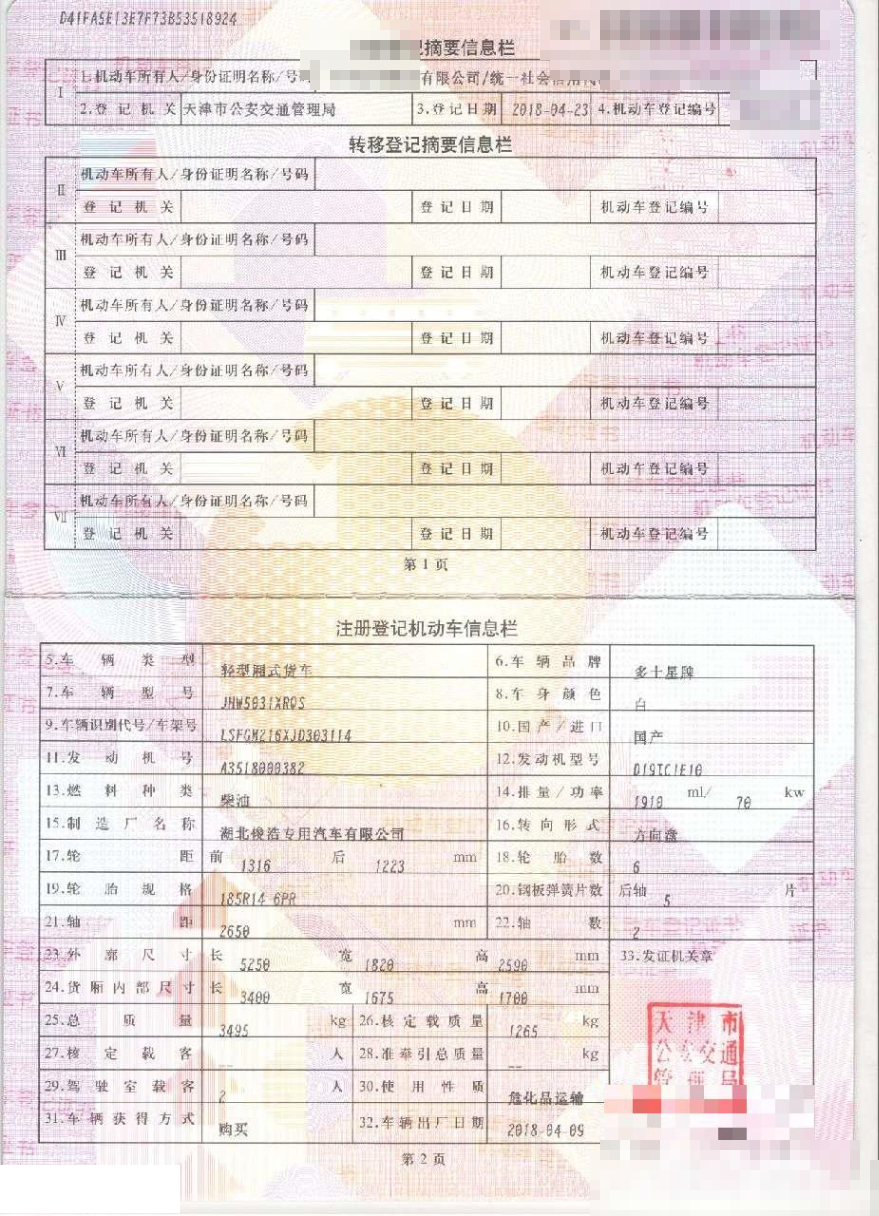 D41FA5E13E7F73B53518924
记摘要信息栏
I 1.机动车所有人/身份证明名称/号码 有限公司/统一社会信用代
2.登记机关 天津市公安交通管理局 3.登记日期 2018-04-23 4.机动车登记编号
转移登记摘要信息栏
II 机动车所有人/身份证明名称/号码
登记机关 登记日期 机动车登记编号
III 机动车所有人/身份证明名称/号码
登记机关 登记日期 机动车登记编号
IV 机动车所有人/身份证明名称/号码
登记机关 登记日期 机动车登记编号
V 机动车所有人/身份证明名称/号码
登记机关 登记日期 机动车登记编号
VI 机动车所有人/身份证明名称/号码
登记机关 登记日期 机动车登记编号
VII 机动车所有人/身份证明名称/号码
登记机关 登记日期 机动车登记编号
第1页
注册登记机动车信息栏
5.车辆类型 轻型厢式货车 6.车辆品牌 多士星牌
7.车辆型号 JHW5031XRQS 8.车身颜色 白
9.车辆识别代号/车架号 LSFGM216XJD303114 10.国产/进口 国产
11.发动机号 A3518000382 12.发动机型号 D19TCIE10
13.燃料种类 柴油 14.排量/功率 1910 ml/ 70 kw
15.制造厂名称 湖北俊浩专用汽车有限公司 16.转向形式 方向盘
17.轮距 前 1316 后 1223 mm 18.轮胎数 6
19.轮胎规格 185R14 6PR 20.钢板弹簧片数 后轴 5 片
21.轴距 2650 mm 22.轴数 2
23.外廓尺寸 长 5250 宽 1820 高 2590 mm 33.发证机关章
24.货厢内部尺寸 长 3400 宽 1675 高 1700 mm
25.总质量 3495 kg 26.核定载质量 1265 kg
27.核定载客 -- 人 28.准牵引总质量 -- kg
29.驾驶室载客 2 人 30.使用性质 危化品运输
31.车辆获得方式 购买 32.车辆出厂日期 2018-04-09
天津市
公安交通
管理局
第2页